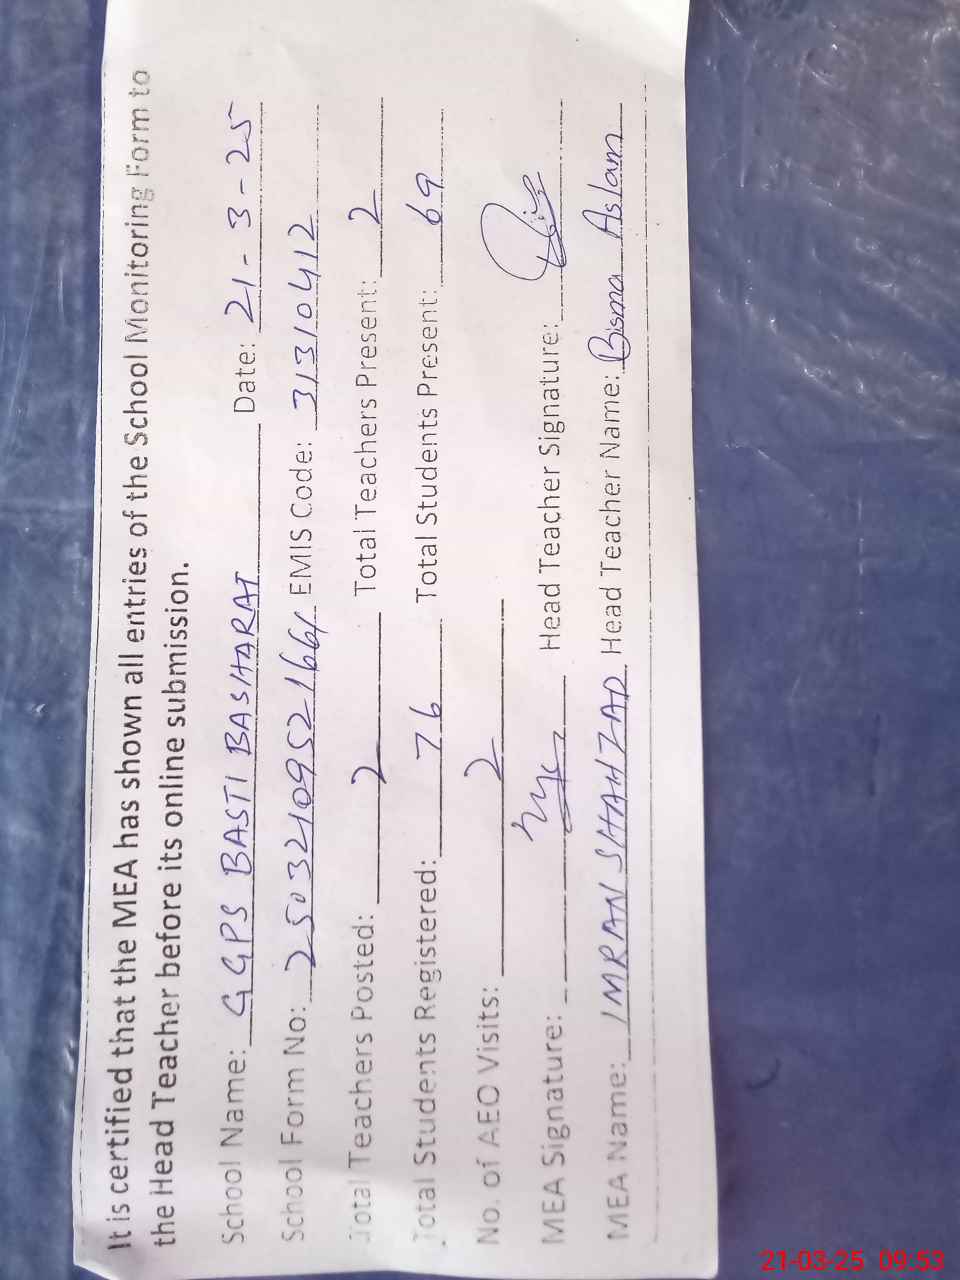 It is certified that the MEA has shown all entries of the School Monitoring Form to
the Head Teacher before its online submission.
School Name: GGPS BASTI BASHARAT Date: 21-3-25
School Form No: 25032109521661 EMIS Code: 31310412
Total Teachers Posted: 2 Total Teachers Present: 2
Total Students Registered: 76 Total Students Present: 69
No. of AEO Visits: 2
MEA Signature: Head Teacher Signature:
MEA Name: IMRAN SHAHZAD Head Teacher Name: Bisma Aslam
21-03-25 09:53